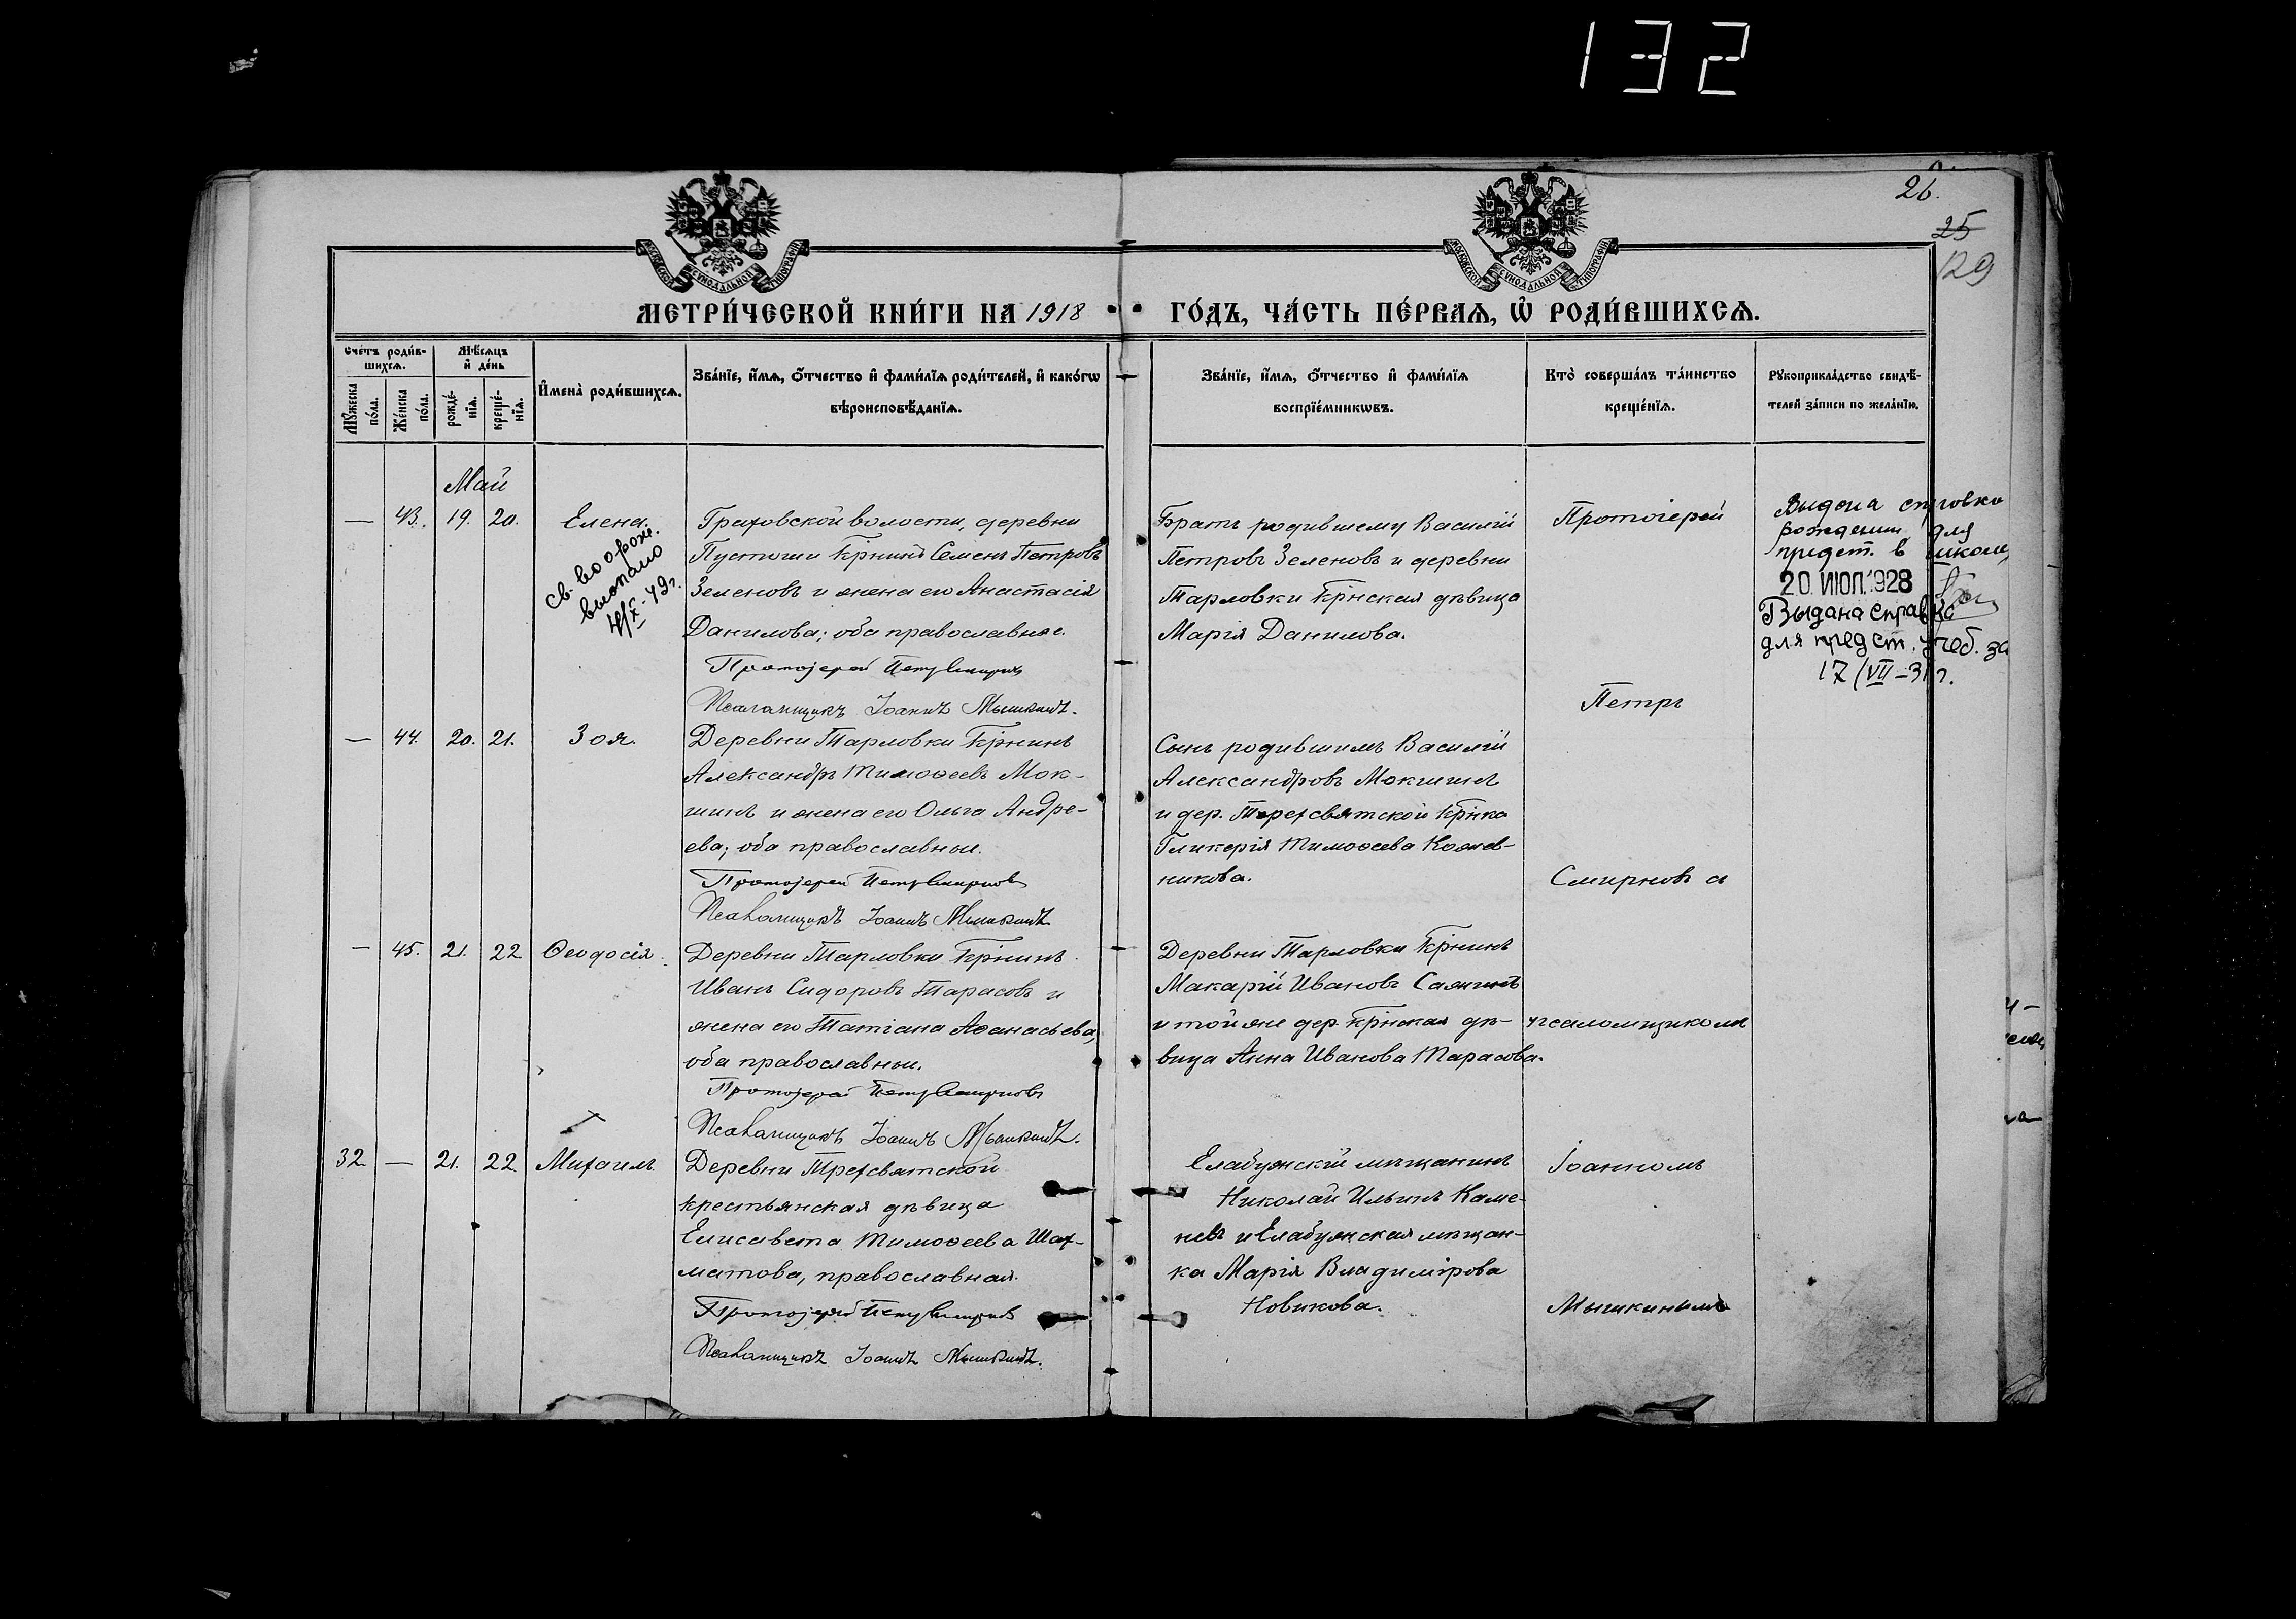 132
26.
25
129
МОСКОВСКОЙ СѴНОДАЛЬНОЙ ТИПОГРАФІИ
МОСКОВСКОЙ СѴНОДАЛЬНОЙ ТИПОГРАФІИ
МЕТРИ́ЧЕСКОЙ КНИ́ГИ НА 1918 ГО́ДЪ, ЧА́СТЬ ПЕ́РВАѦ, Ѡ҆ РОДИ́ВШИХСѦ.
Сче́тъ роди́в-
шихсѧ.
Мꙋ́жеска
по́ла.
Же́нска
по́ла.
Мѣ́сѧцъ
и҆ де́нь
рожде́-
нїѧ.
креще́-
нїѧ.
И҆мена̀ роди́вшихсѧ.
Зва́нїе, и҆́мѧ, ѻ҆́тчество и҆ фами́лїѧ роди́телей, и҆ како́гѡ
вѣроисповѣ́данїѧ.
Зва́нїе, и҆́мѧ, ѻ҆́тчество и҆ фами́лїѧ
воспрїе́мникѡвъ.
Кто̀ соверша́лъ та́инство
креще́нїѧ.
Рꙋкоприкла́дство свидѣ́-
телей за́писи по жела́нїю.
Май
— 43. 19. 20. Елена.
Св. во о рожд.
выслано
4/X-49г.
Граховской волости, деревни
Пустоши Кр̃нинъ Семенъ Петровъ
Зеленовъ и жена его Анастасія
Данилова; оба православные.
Протоіерей Петръ Смирновъ
Псаломщикъ Іоаннъ Мышкинъ.
Братъ родившему Василій
Петровъ Зеленовъ и деревни
Тарловки Кр̃нская дѣвица
Марія Данилова.
Протоіерей
Выдана справка
рождении для
предст. в школу
20 ИЮЛ.1928
Выдана справка
для предст. учеб. за
17/VII-31г.
Петръ
— 44. 20. 21. Зоя.
Деревни Тарловки Кр̃нинъ
Александръ Тимоѳеевъ Мок-
шинъ и жена его Ольга Андре-
ева; оба православные.
Протоіерей Петръ Смирновъ
Псаломщикъ Іоаннъ Мышкинъ
Сынъ родившимъ Василій
Александровъ Мокшинъ
и дер. Трехсвятской Кр̃нка
Гликерія Тимоѳеева Кожев-
никова.
Смирновъ съ
— 45. 21. 22 Ѳеодосія.
Деревни Тарловки Кр̃нинъ
Иванъ Сидоровъ Тарасовъ и
жена его Татіана Аѳанасьева,
оба православные.
Протоіерей Петръ Смирновъ
Псаломщикъ Іоаннъ Мышкинъ.
Деревни Тарловки Кр̃нинъ
Макарій Ивановъ Саяпинъ
и той же дер. Кр̃нская дѣ-
вица Анна Иванова Тарасова.
псаломщикомъ
32 — 21. 22. Михаилъ
Деревни Трехсвятской
крестьянская дѣвица
Елисавета Тимоѳеева Шах-
матова, православная.
Протоіерей Петръ Смирновъ
Псаломщикъ Іоаннъ Мышкинъ.
Елабужскій мѣщанинъ
Николай Ильинъ Каме-
невъ и Елабужская мѣщан-
ка Марія Владимірова
Новикова.
Іоанномъ
Мышкинымъ